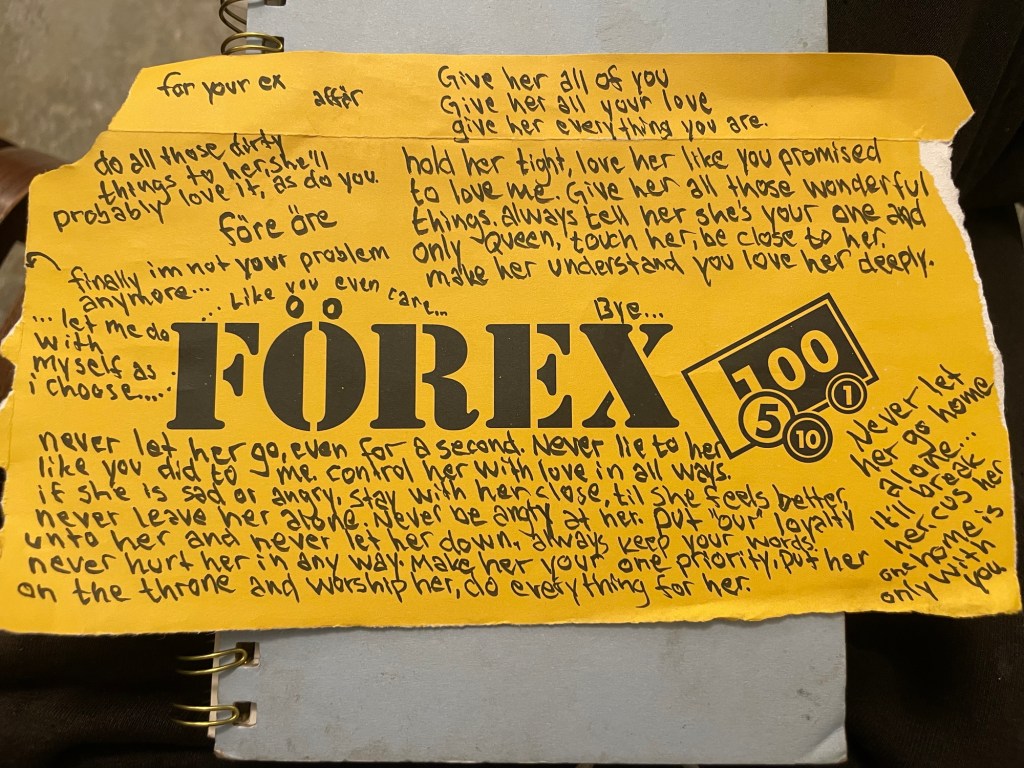 for your ex
affär
Give her all of you
Give her all your love
give her everything you are.
do all those dirty
things to her, she'll
probably love it, as do you.
före öre
hold her tight, love her like you promised
to love me. Give her all those wonderful
things. always tell her she's your one and
only Queen, touch her, be close to her.
make her understand you love her deeply.
finally im not your problem
anymore...
... Like you even care...
... let me do
with
myself as
i choose....
Bye...
FÖREX
100
5
10
1
never let her go, even for a second. Never lie to her
like you did to me. control her with love in all ways.
if she is sad or angry, stay with her close, til she feels better,
never leave her alone. Never be angry at her. put "our" loyalty
unto her and never let her down, always keep your words.
never hurt her in any way. Make her your one priority, put her
on the throne and worship her, do everything for her.
Never let
her go home
alone...
It'll break
her. cus her
one home is
only with
you.